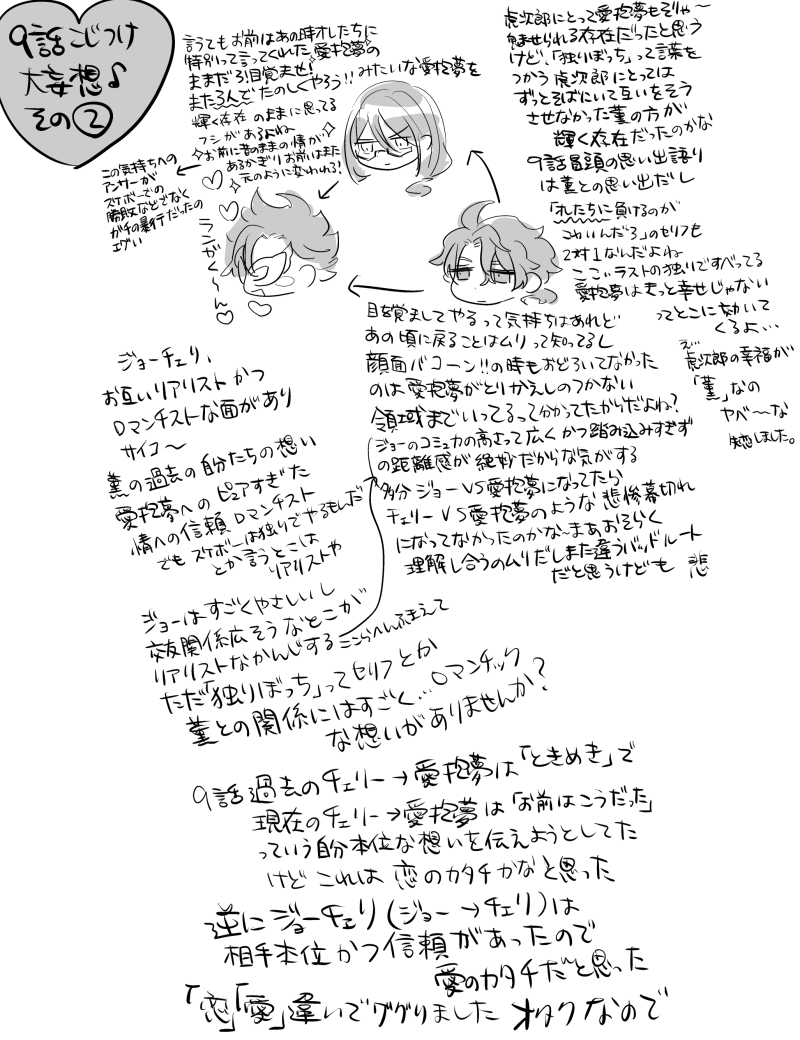 9話こじつけ
大妄想♪
その②
言うてもお前はあの時オレたちに
特別って言ってくれた愛抱夢の
ままだろ!目覚ませ!
また3人でたのしくやろう!!みたいな愛抱夢を
輝く存在のままに思ってる
フシがあるよね
お前に昔のままの情が
あるかぎりお前はまた
元のように変われる?
この気持ちへの
アンサーが
スケボーでの
勝敗などでなく
ガチの暴行だったの
エグい
ランガく〜ん
虎次郎にとって愛抱夢もそりゃ〜
魅せられる存在だったと思う
けど、「独りぼっち」って言葉を
つかう虎次郎にとっては
ずっとそばにいて互いをそう
させなかった薫の方が
輝く存在だったのかな
9話冒頭の思い出語り
は薫との思い出だし
「オレたちに負けるのが
こわいんだろ」のセリフも
2対1なんだよね
ここがラストの独りですべってる
愛抱夢はきっと幸せじゃない
ってとこに効いて
くるよ…
え…
虎次郎の幸福が
「薫」なの
ヤベ〜な
恋しました。
目を覚ましてやるって気持ちはあれど
あの頃に戻ることはムリって知ってるし
顔面バコーン!!の時もおどろいてなかった
のは愛抱夢がとりかえしのつかない
領域までいってるって分かってたからだよね?
ジョーのコミュ力の高さって広くかつ踏み込みすぎず
の距離感が絶妙だからな気がする
多分ジョーVS愛抱夢になってたら
チェリーVS愛抱夢のような悲惨幕切れ
になってなかったのかな〜まあおそらく
理解し合うのムリだしまた違うバッドルート
だと思うけども 悲
ジョーチェリ、
お互いリアリストかつ
ロマンチストな面があり
サイコ〜
薫の過去の自分たちの想い
愛抱夢へのピュアすぎた
情への信頼ロマンチスト
でもスケボーは独りでやるもんだ
とか言うとこは
リアリストや
ジョーはすごくやさしいし
交友関係広そうなとこが
リアリストなかんじする ここらへんふまえて
ただ「独りぼっち」ってセリフとか
薫との関係にはすごく…ロマンチック
な想いがありませんか?
9話過去のチェリー→愛抱夢は「ときめき」で
現在のチェリー→愛抱夢は「お前はこうだった」
っていう自分本位な想いを伝えようとしてた
けどこれは恋のカタチかなと思った
逆にジョーチェリ(ジョー→チェリ)は
相手本位かつ信頼があったので
愛のカタチだと思った
「恋」「愛」違いでググりました オタクなので